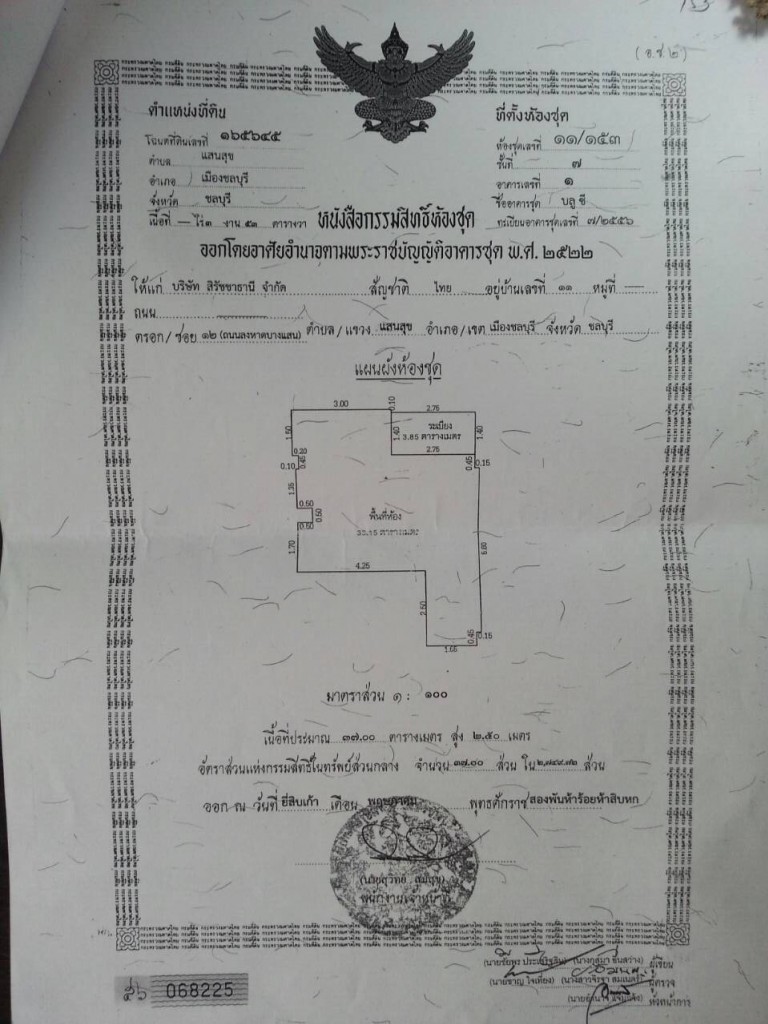 (อ.ช.๒)
ตำแหน่งที่ดิน
โฉนดที่ดินเลขที่ ๑๖๕๖๔๕
ตำบล แสนสุข
อำเภอ เมืองชลบุรี
จังหวัด ชลบุรี
เนื้อที่ — ไร่ ๓ งาน ๕๓ ตารางวา
ที่ตั้งห้องชุด
ห้องชุดเลขที่ ๑๑/๑๕๓
ชั้นที่ ๗
อาคารเลขที่ ๑
ชื่ออาคารชุด บลู ซี
ทะเบียนอาคารชุดเลขที่ ๗/๒๕๕๖
หนังสือกรรมสิทธิ์ห้องชุด
ออกโดยอาศัยอำนาจตามพระราชบัญญัติอาคารชุด พ.ศ. ๒๕๒๒
ให้แก่ บริษัท สิรัชชาธานี จำกัด สัญชาติ ไทย อยู่บ้านเลขที่ ๑๑ หมู่ที่ —
ถนน
ตรอก/ซอย ๑๒ (ถนนลงหาดบางแสน) ตำบล/แขวง แสนสุข อำเภอ/เขต เมืองชลบุรี จังหวัด ชลบุรี
แผนผังห้องชุด
3.00
0.10
2.75
1.50
1.40
ระเบียง
3.85 ตารางเมตร
1.40
2.75
0.20
0.45
0.45
0.15
0.10
1.35
0.50
0.50
0.50
พื้นที่ห้อง
33.15 ตารางเมตร
1.70
6.80
4.25
2.50
0.45
0.15
1.65
มาตราส่วน ๑ : ๑๐๐
เนื้อที่ประมาณ ๓๗.๐๐ ตารางเมตร สูง ๒.๕๐ เมตร
อัตราส่วนแห่งกรรมสิทธิ์ในทรัพย์ส่วนกลาง จำนวน ๓๗.๐๐ ส่วน ใน ส่วน
ออก ณ วันที่ ยี่สิบเก้า เดือน พฤษภาคม พุทธศักราช สองพันห้าร้อยห้าสิบหก
(นายสุวิทย์
พนักงานเจ้าหน้าที่
ผู้เขียน
ผู้ตรวจ
หัวหน้าการ
068225